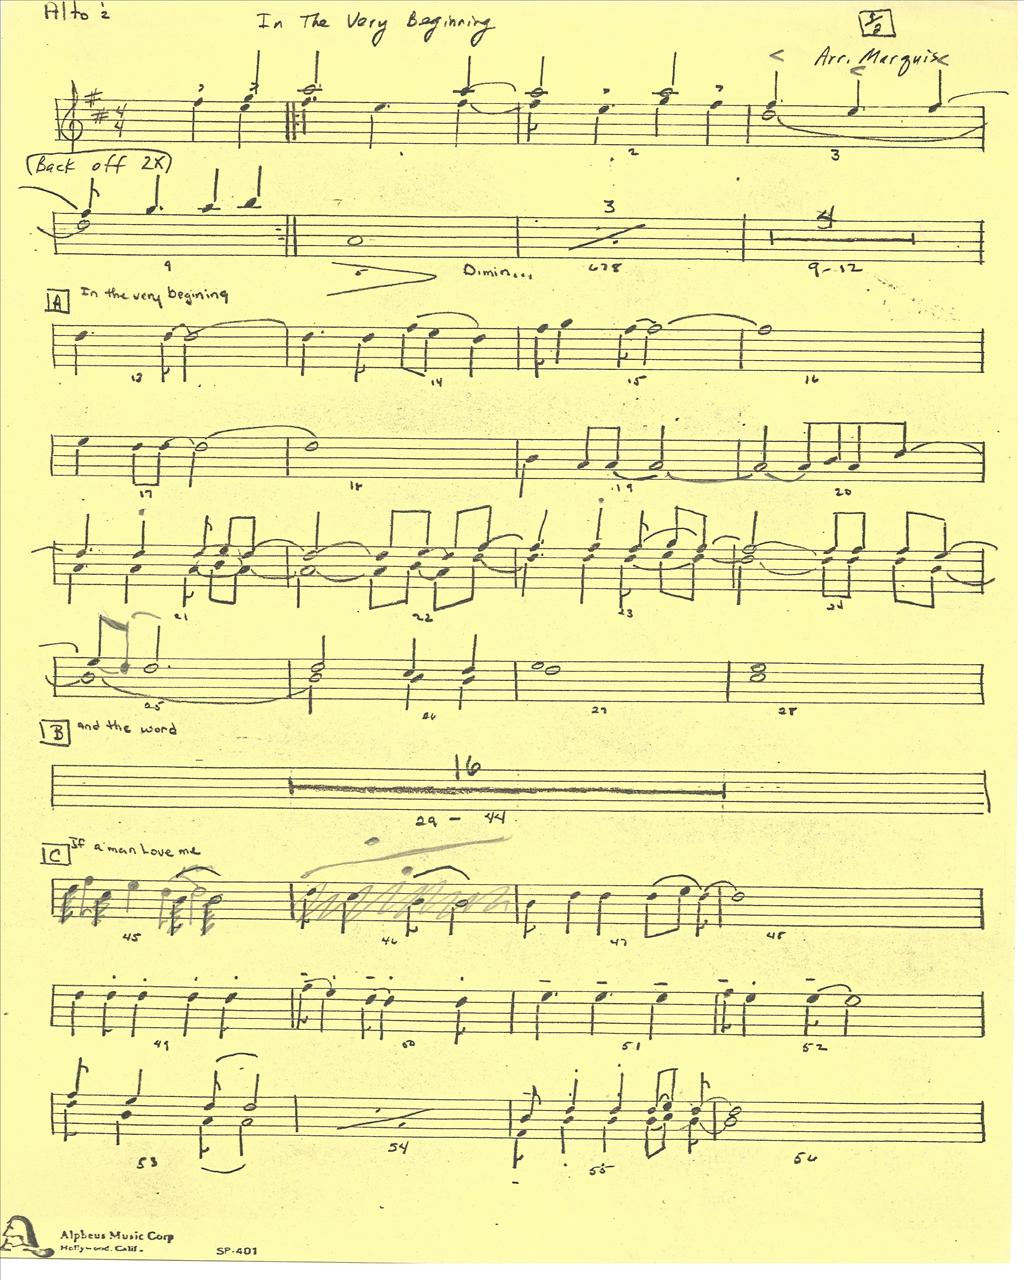 Alto 1/2
In The Very Beginning
1/2
Arr. Marquise
4/4
2
3
(Back off 2X)
4
5
Dimin...
3
678
4
9-12
A In the very begining
13
14
15
16
17
18
19
20
21
22
23
24
25
26
27
28
B and the word
16
29 - 44
C If a man Love me
45
46
47
48
49
50
51
52
53
54
55
56
Alpheus Music Corp
Hollywood, Calif.
SP-401